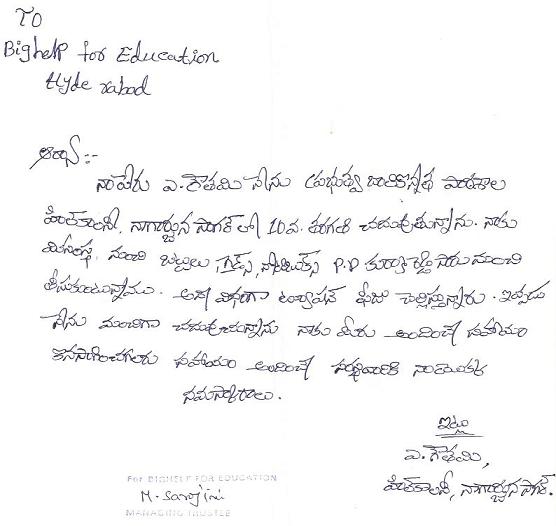 TO
Bighelp for Education
Hyderabad
ఆర్యా :-
నా పేరు ఎ. గౌతమి నేను ప్రభుత్వ బాలికోన్నత పాఠశాల
హిల్ కాలనీ, నాగార్జున సాగర్ లో 10వ. తరగతి చదువుతున్నాను. నాకు
మీ సంస్థ నుంచి బట్టలు, బుక్స్, నోట్ బుక్స్ P.D సారు నుంచి
తీసుకుంటున్నాము. అదే విధంగా ట్యూషన్ ఫీజు చెల్లిస్తున్నారు. ఇప్పుడు
నేను మంచిగా చదువుతున్నాను నాకు మీరు అందించే సహాయం
కొనసాగించగలరు సహాయం అందించే నా యొక్క
నమస్కారాలు.
ఇట్లు
ఎ. గౌతమి,
హిల్ కాలనీ, నాగార్జున సాగర్.
For BIGHELP FOR EDUCATION
M. Sarojini
MANAGING TRUSTEE